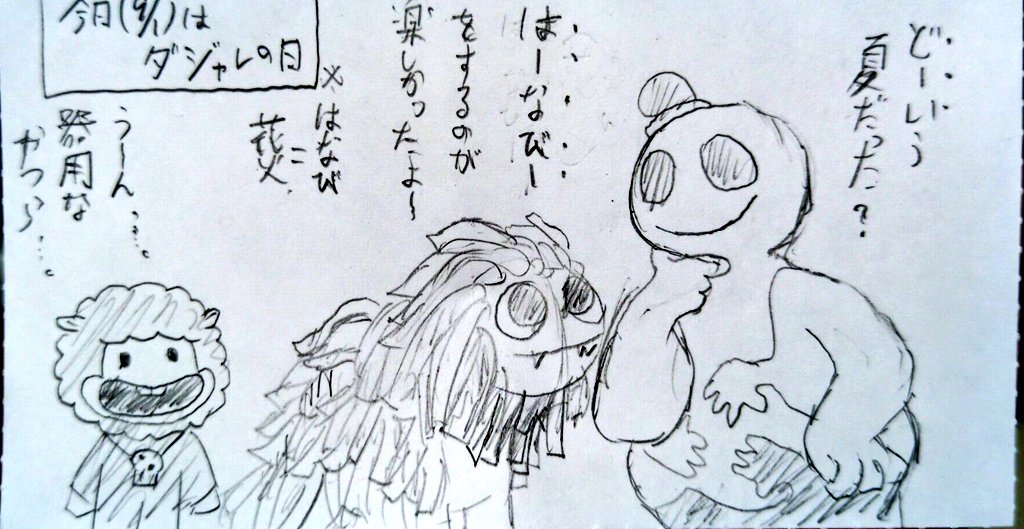 今日(9/1)は
ダジャレの日
どーいう
夏だった?
はーなびー
をするのが
楽しかったよ〜
※はなび
=
花火
うーん…
器用な
やつら…